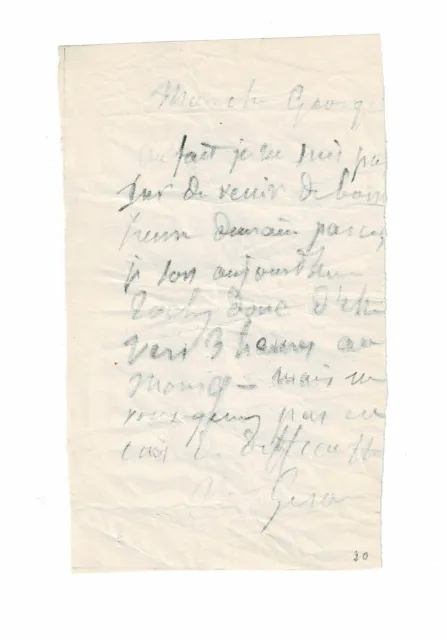 Mon cher Georg
au fait je ne suis pa
sur de venir de bonn
heure demain parce q
je sors aujourd'hui
donc d'êt
vers 3 heures au
mais ne
vous gênez pas en
cas de difficult
30